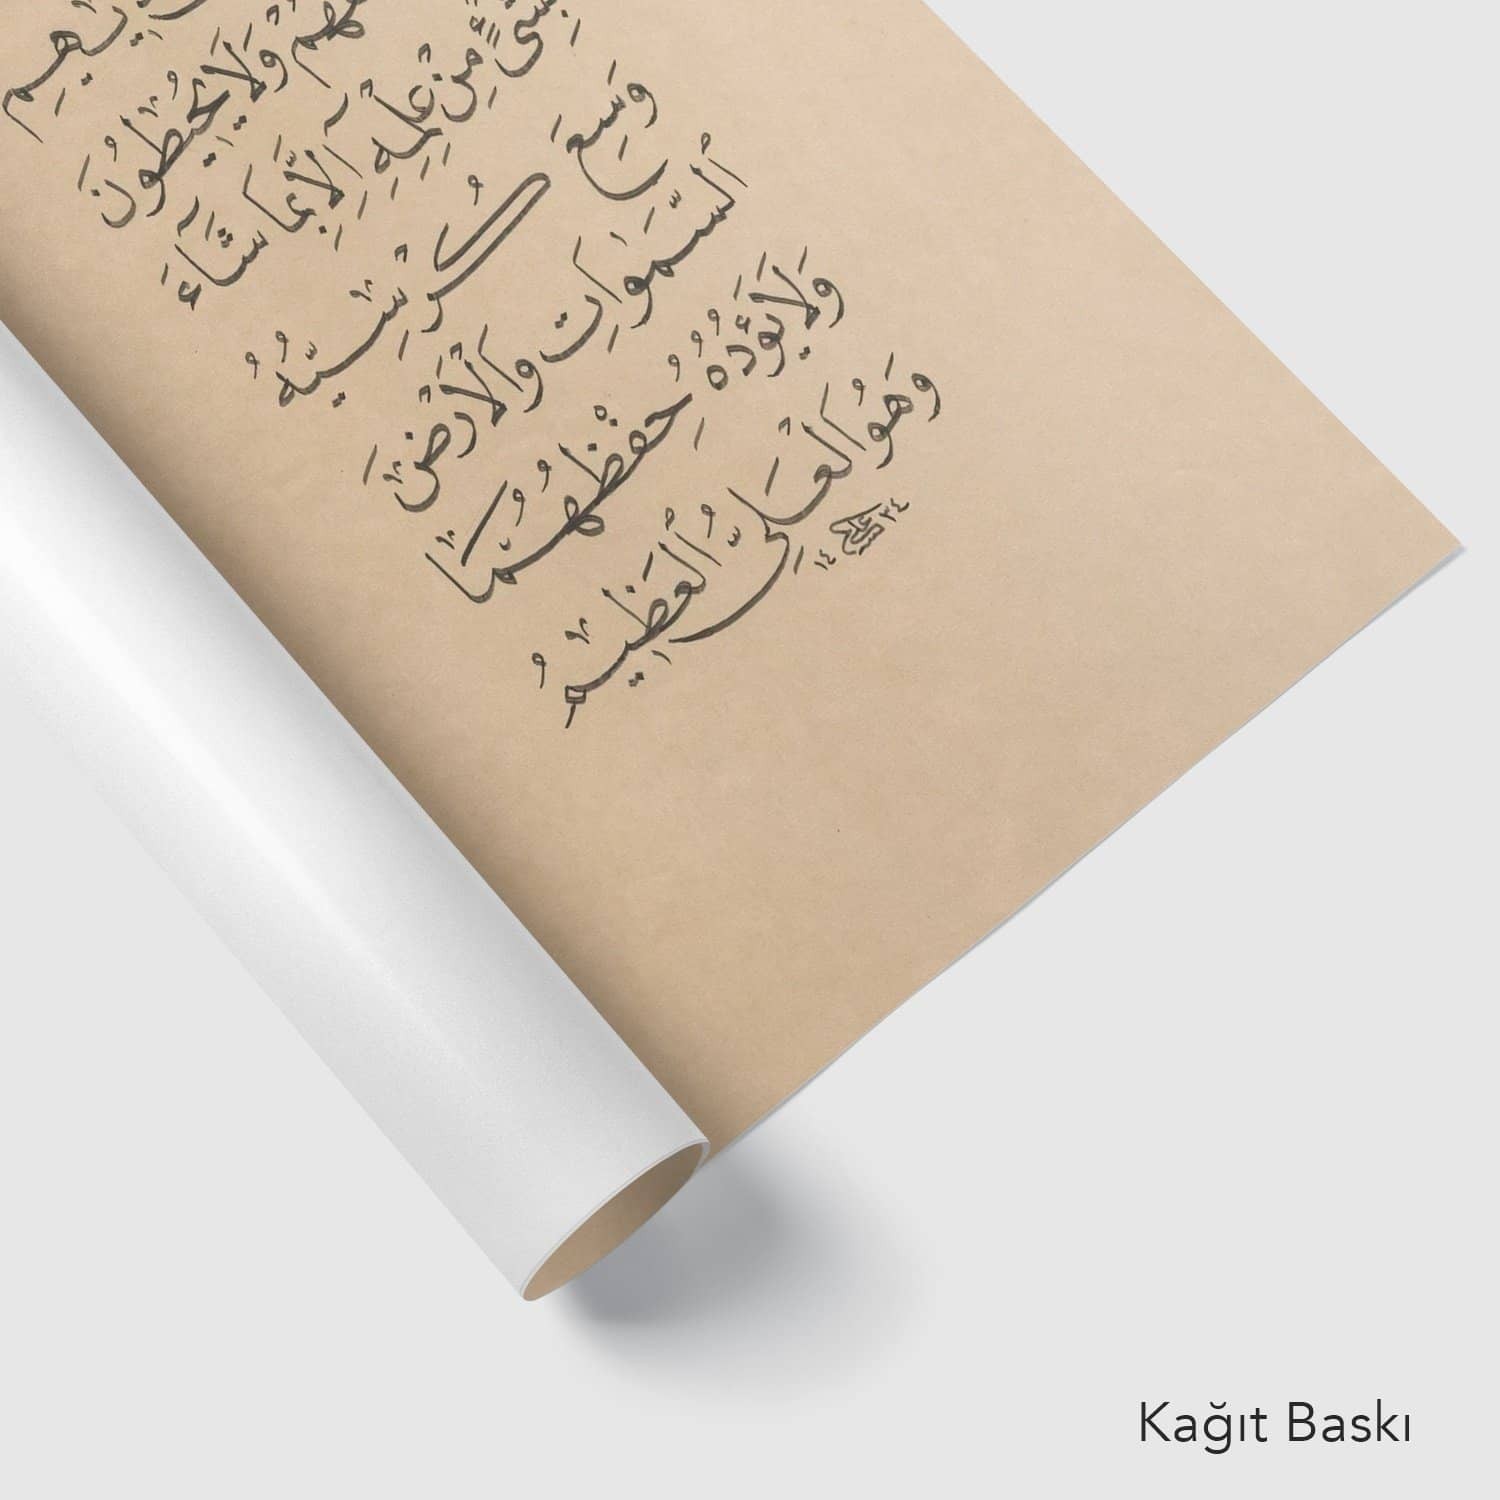 وَلَا يُحِيطُونَ
بِشَىْءٍ مِنْ عِلْمِهِ إِلَّا بِمَا شَاءَ
وَسِعَ كُرْسِيُّهُ
ٱلسَّمٰوَاتِ وَالْاَرْضَ
وَلَا يَؤُدُهُ حِفْظُهُمَا
وَهُوَ ٱلْعَلِىُّ ٱلْعَظِيمُ
٣٤ ١٤
Kağıt Baskı